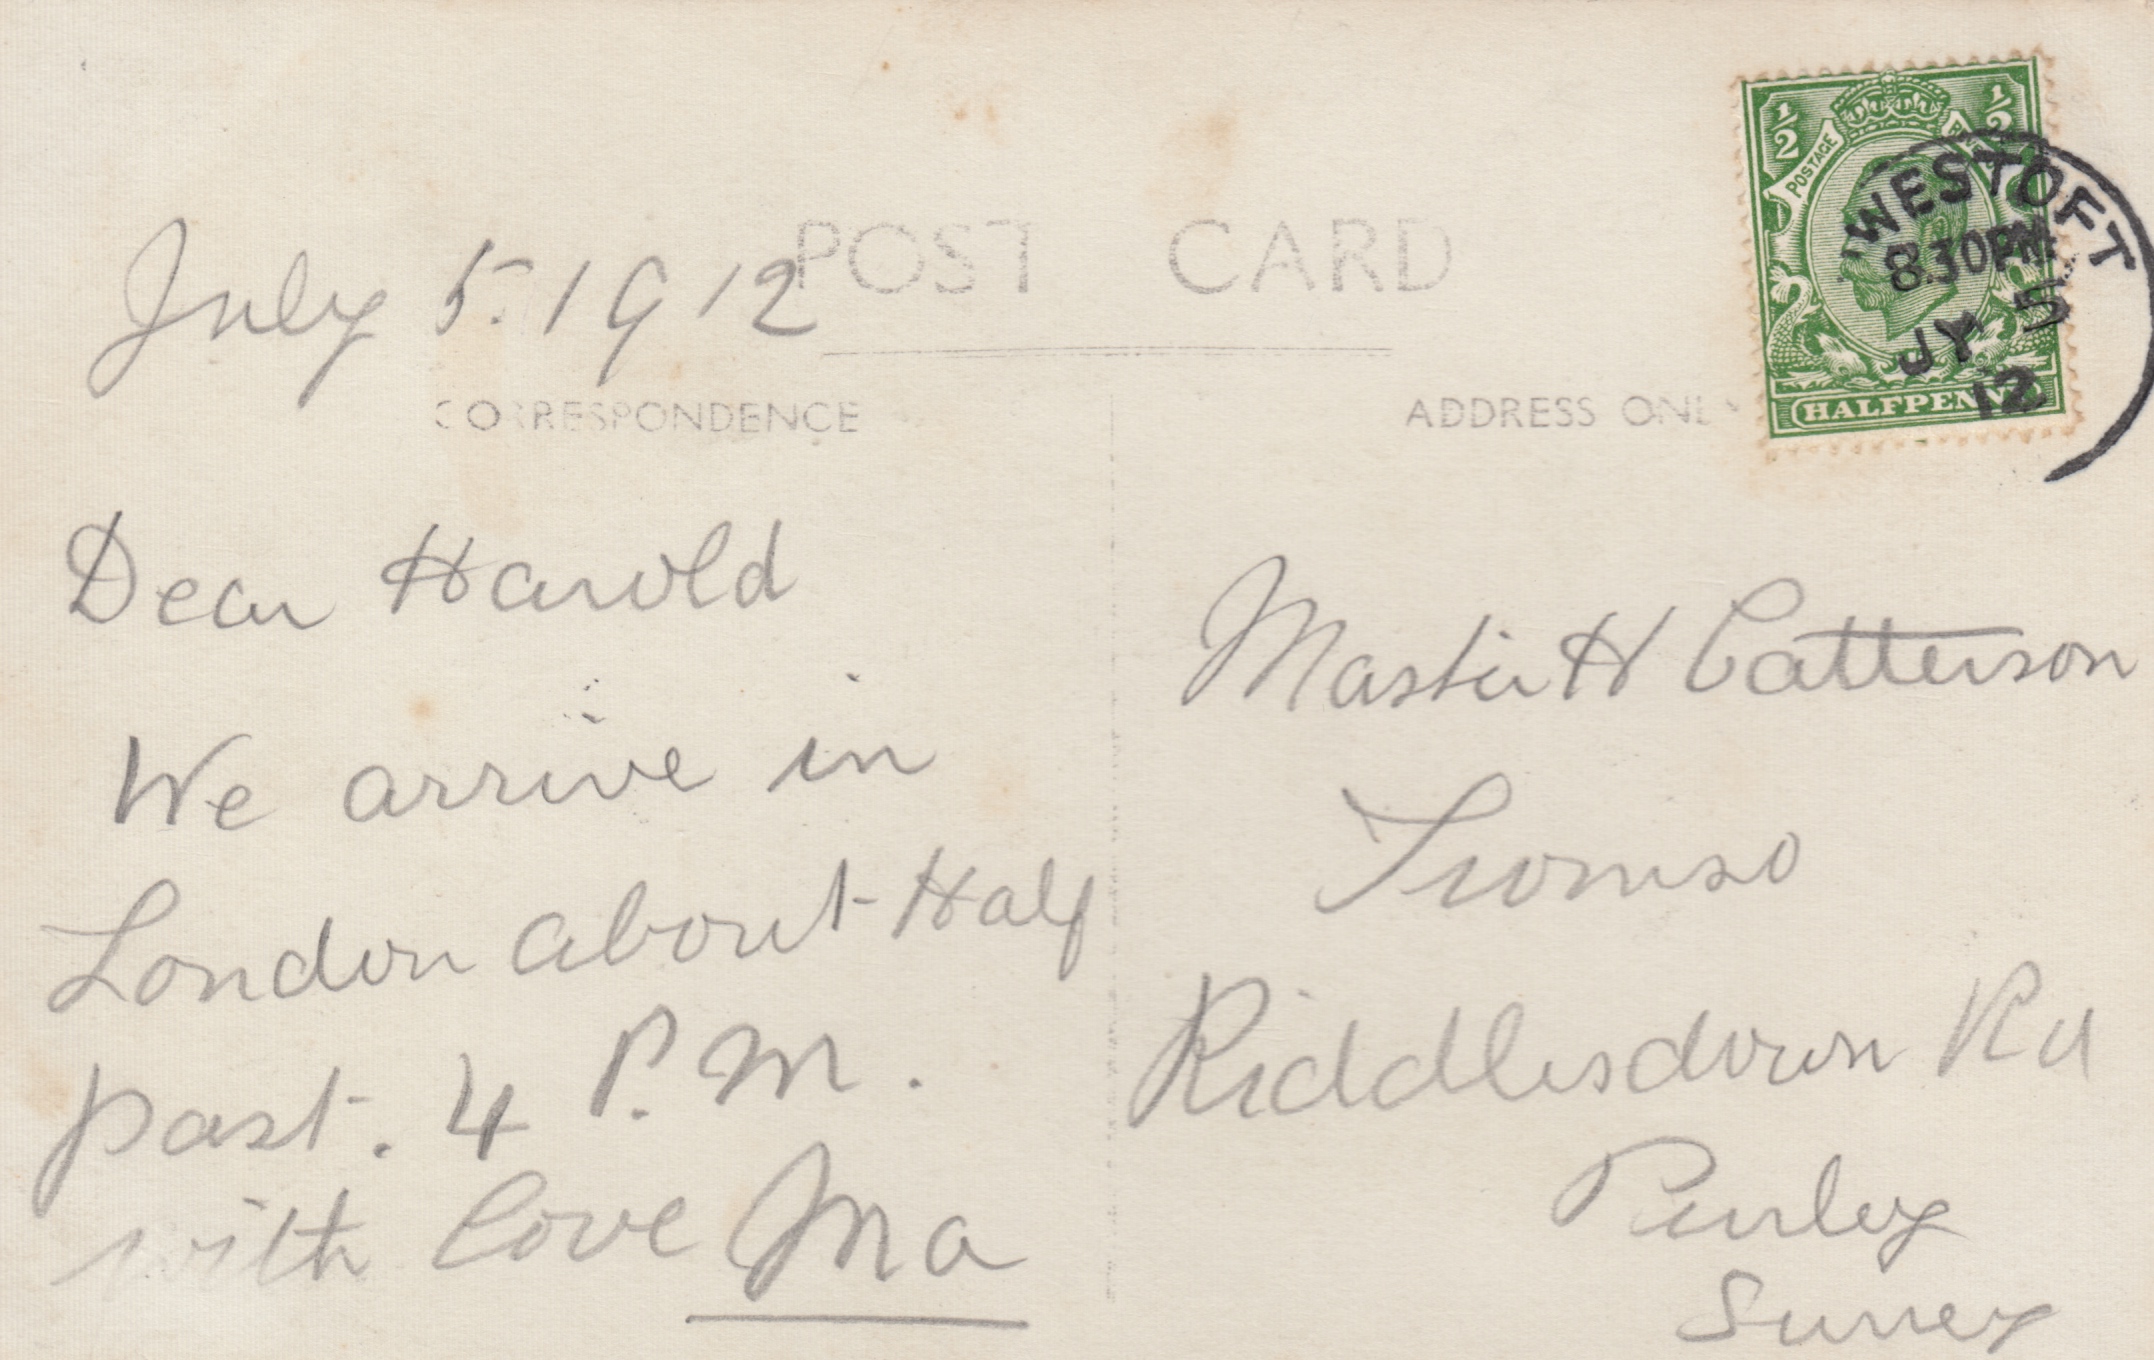 POST CARD
July 5. 1912
CORRESPONDENCE
Dear Harold
We arrive in
London about Half
past. 4 P.M.
with love Ma
ADDRESS ONL
½ ½
POSTAGE
HALFPENNY
WESTOFT
8.30PM
JY 5
12
Master H Catterson
Tromso
Riddlesdown Rd
Purley
Surrey